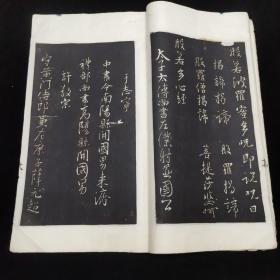 般若波羅蜜多咒即說咒曰
揭諦揭諦 般羅揭諦
般羅僧揭諦 菩提莎婆呵
般若多心經
太子太傅尚書左僕射燕國公
于志寧
中書令南陽縣開國男来濟
禮部尚書高陽縣開國男
許敬宗
守黃門侍郎兼左庶子薛元超